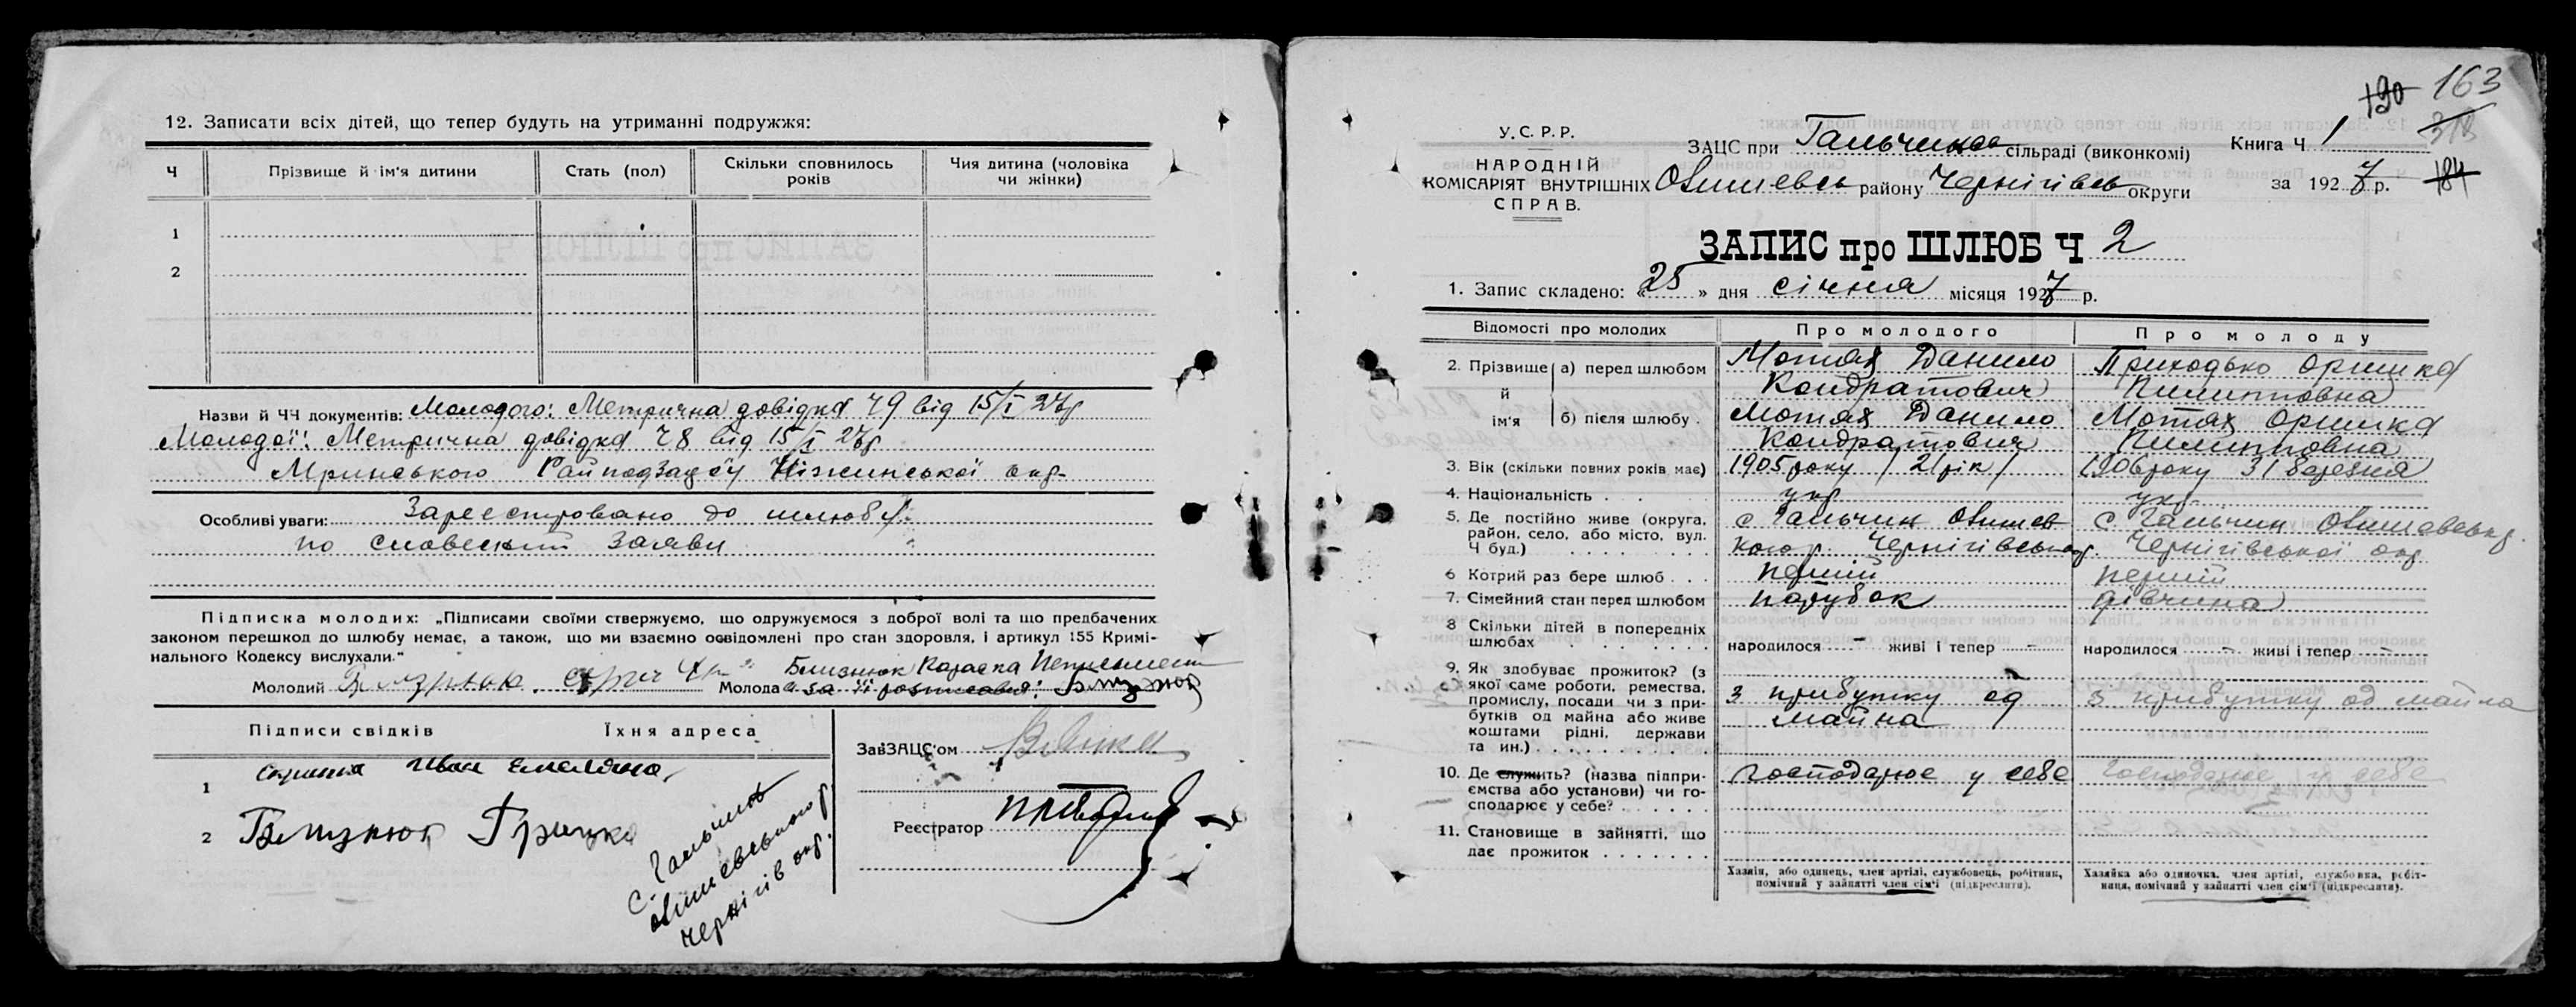 12. Записати всіх дітей, що тепер будуть на утриманні подружжя:
Ч
Прізвище й ім'я дитини
Стать (пол)
Скільки сповнилось років
Чия дитина (чоловіка чи жінки)
1
2
Назви й ЧЧ документів: Молодого: Метрична довідка 79 від 15/I 27р
Молодої: Метрична довідка 78 від 15/I 27р
Мринського Райподзагсу Ніжинської окр.
Особливі уваги: Зареєстровано до шлюбу
по словескій заяви
Підписка молодих: „Підписами своїми стверджуємо, що одружуємося з доброї волі та що предбачених
законом перешкод до шлюбу немає, а також, що ми взаємно освідомлені про стан здоровля, і артикул 155 Кримі-
нального Кодексу вислухали."
Молодий Близнюк
Молода Близнюк
а за її росписався: Близнюк
Підписи свідків
Їхня адреса
1 Іван
2 Близнюк Грицко
с. Гальчин
Олишевського р.
Чернігів окр.
Зав'ЗАЦС'ом
Реєстратор
190 163
318
184
У.С.Р.Р.
НАРОДНІЙ
КОМІСАРІЯТ ВНУТРІШНІХ
СПРАВ.
ЗАЦС при Гальчинсь сільраді (виконкомі)
Олишевсь району Чернігівсь округи
Книга Ч 1
за 1927 р.
ЗАПИС про ШЛЮБ Ч 2
1. Запис складено: «25» дня січня місяця 1927 р.
Відомості про молодих
Про молодого
Про молоду
2. Прізвище й ім'я
а) перед шлюбом
Мотях Данило
Кондратович
Приходько Оришка
Пилиповна
б) після шлюбу
Мотях Данило
Кондратович
Мотях Оришка
Пилиповна
3. Вік (скільки повних років має)
1905 року /21 рік/
1906 року 31 березня
4. Національність
укр
укр
5. Де постійно живе (округа, район, село, або місто, вул. Ч буд.)
с Гальчин Олишев
кого р. Чернігівськ окр.
с Гальчин Олишевськ р.
Чернігівської окр
6 Котрий раз бере шлюб
перший
перший
7. Сімейний стан перед шлюбом
парубок
дівчина
8 Скільки дітей в попередніх шлюбах
народилося - живі і тепер -
народилося - живі і тепер -
9. Як здобуває прожиток? (з якої саме роботи, ремества, промислу, посади чи з прибутків од майна або живе коштами рідні, держави та ин.)
з прибутку од
майна
з прибутку од майна
10. Де служить? (назва підприємства або установи) чи господарює у себе?
господарює у себе
господарює у себе
11. Становище в зайнятті, що дає прожиток
Хазяїн, або одинець, член артілі, службовець, робітник,
помічний у зайнятті член сім'ї (підкреслити).
Хазяйка або одиночка, член артілі, службовка, робіт-
ниця, помічний у зайнятті член сім'ї (підкреслити).